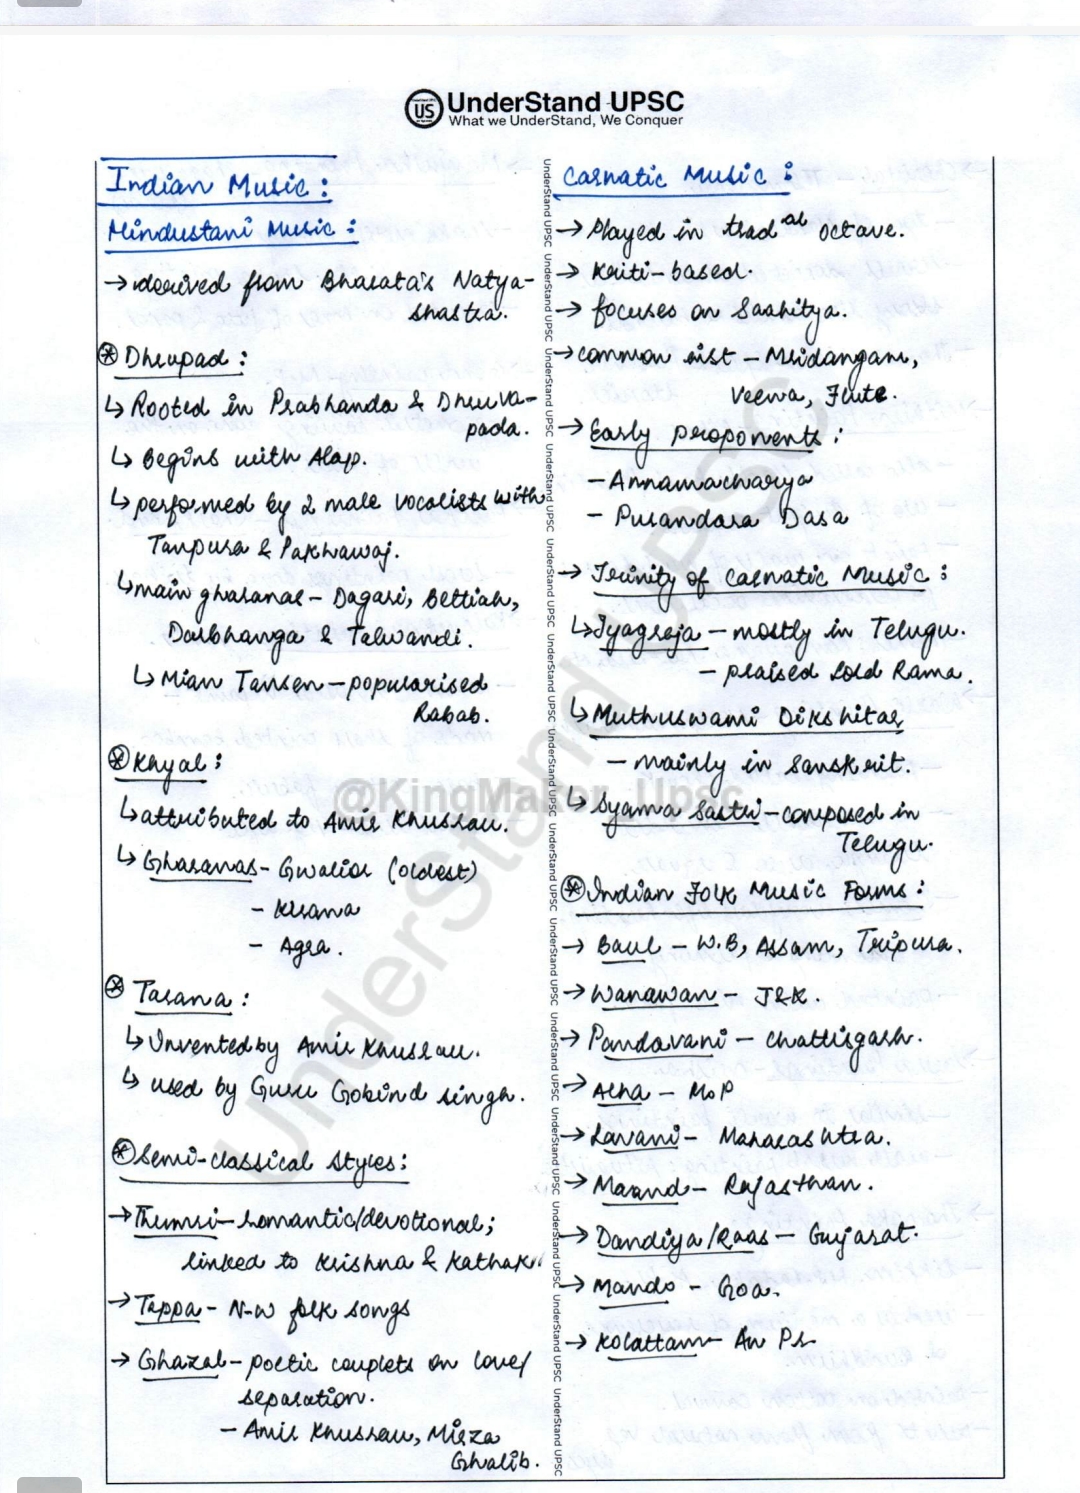 US UnderStand UPSC
What we UnderStand, We Conquer
Indian Music:
Hindustani Music:
→ derived from Bharata's Natya-
shastra.
⊛ Dhrupad:
↳ Rooted in Prabhanda & Dhruva-
pada.
↳ Begins with Alap.
↳ performed by 2 male vocalists with
Tanpura & Pakhawaj.
↳ main gharanas - Dagari, Bettiah,
Darbhanga & Talwandi.
↳ Mian Tansen - popularised
Rabab.
⊛ Khyal:
↳ attributed to Amir Khusrau.
↳ Gharanas - Gwalior (oldest)
- Kirana
- Agra.
⊛ Tarana:
↳ Invented by Amir Khusrau.
↳ used by Guru Gobind singh.
⊛ Semi-classical styles:
→ Thumri - romantic/devotional;
linked to Krishna & Kathak
→ Tappa - N-W folk songs
→ Ghazal - poetic couplets on love/
separation.
- Amir Khusrau, Mirza
Ghalib.
Carnatic Music:
→ Played in trad^al octave.
→ Kriti-based.
→ focuses on Saahitya.
→ common inst - Mridangam,
Veena, Flute.
→ Early proponents:
- Annamacharya
- Purandara Dasa
→ Trinity of Carnatic Music:
↳ Tyagraja - mostly in Telugu.
- praised Lord Rama.
↳ Muthuswami Dikshitar
- mainly in Sanskrit.
↳ Syama Sastri - composed in
Telugu.
⊛ Indian Folk Music Forms:
→ Baul - W.B, Assam, Tripura.
→ Wanawan - J&K.
→ Pandavani - Chattisgarh.
→ Alha - M.P
→ Lavani - Maharashtra.
→ Maand - Rajasthan.
→ Dandiya/Raas - Gujarat.
→ Mando - Goa.
→ Kolattam - An Pr
UnderStand UPSC
@KingMaker_Upsc
UnderStand UPSC UnderStand UPSC UnderStand UPSC UnderStand UPSC UnderStand UPSC UnderStand UPSC UnderStand UPSC UnderStand UPSC UnderStand UPSC UnderStand UPSC UnderStand UPSC UnderStand UPSC UnderStand UPSC UnderStand UPSC